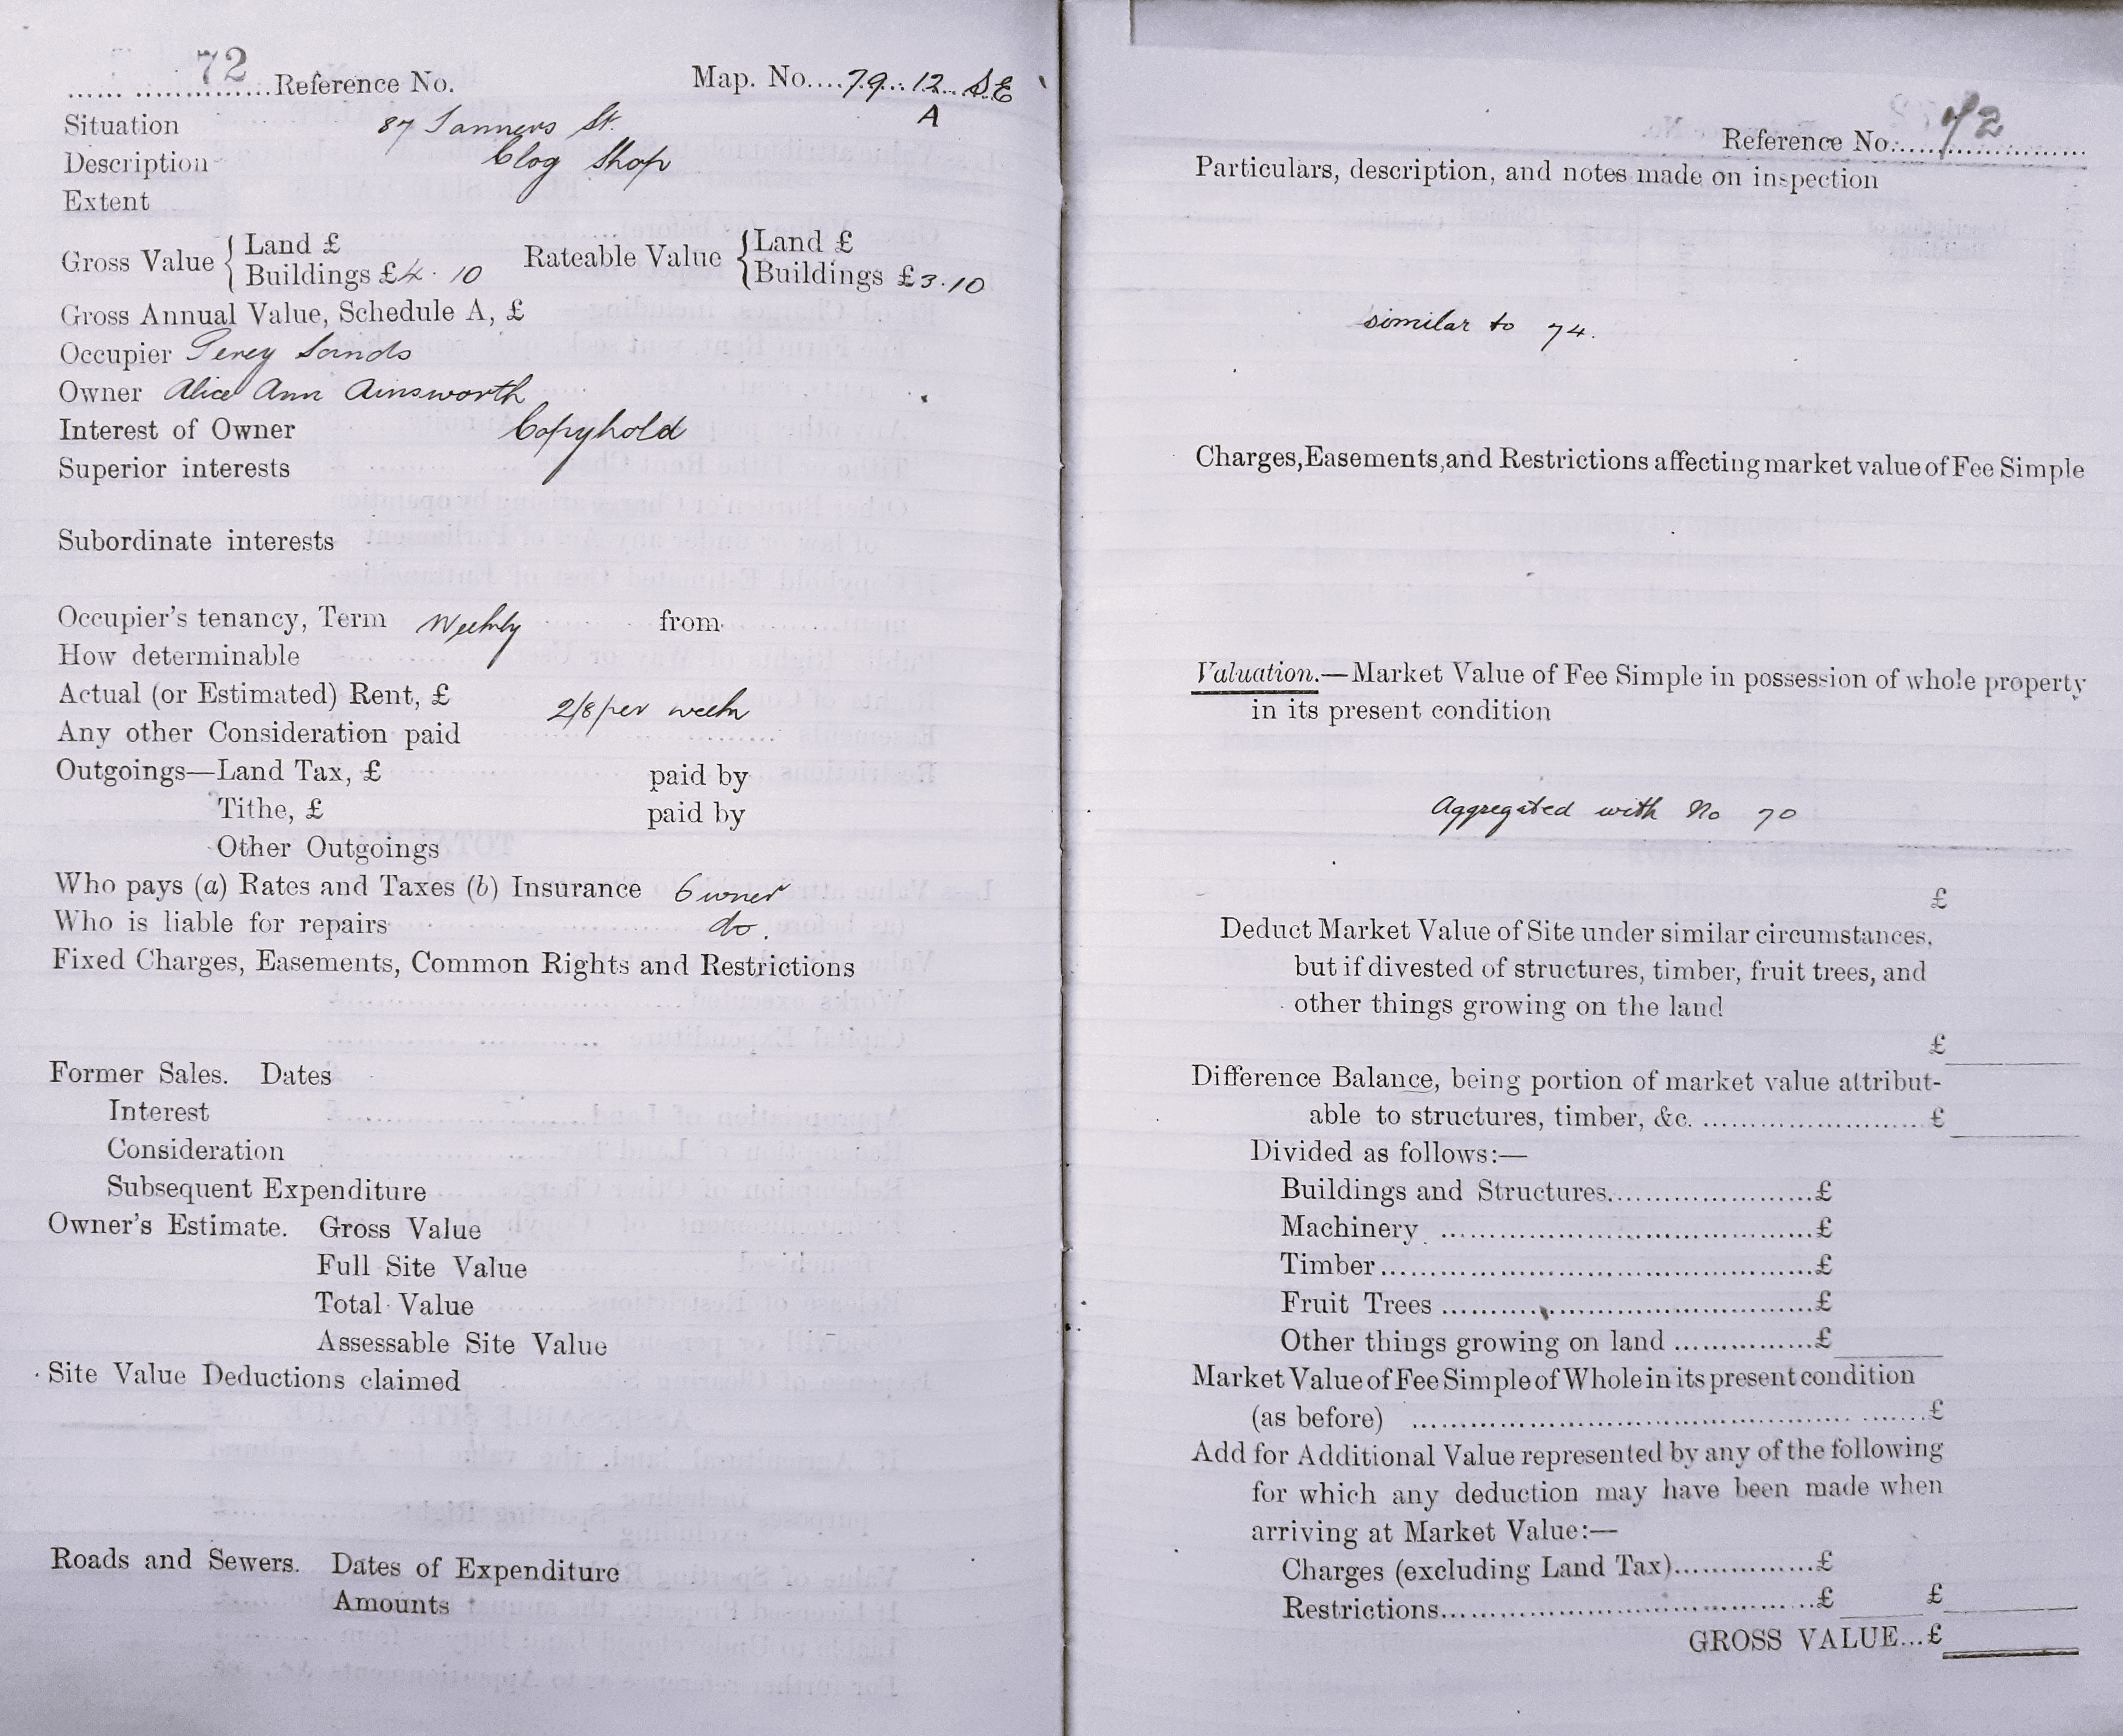 72 Reference No. Map. No. 79. 12. S.E
A
Situation 87 Tanners St.
Description Clog Shop
Extent
Gross Value { Land £
Buildings £4. 10
Rateable Value { Land £
Buildings £3.10
Gross Annual Value, Schedule A, £
Occupier Percy Sands
Owner Alice Ann Ainsworth
Interest of Owner Copyhold
Superior interests
Subordinate interests
Occupier's tenancy, Term Weekly from
How determinable
Actual (or Estimated) Rent, £ 2/8 per week
Any other Consideration paid
Outgoings—Land Tax, £ paid by
Tithe, £ paid by
Other Outgoings
Who pays (a) Rates and Taxes (b) Insurance Owner
Who is liable for repairs do.
Fixed Charges, Easements, Common Rights and Restrictions
Former Sales. Dates
Interest
Consideration
Subsequent Expenditure
Owner's Estimate. Gross Value
Full Site Value
Total Value
Assessable Site Value
Site Value Deductions claimed
Roads and Sewers. Dates of Expenditure
Amounts
Reference No. 72
Particulars, description, and notes made on inspection
similar to 74.
Charges, Easements, and Restrictions affecting market value of Fee Simple
Valuation.—Market Value of Fee Simple in possession of whole property
in its present condition
Aggregated with No 70
£
Deduct Market Value of Site under similar circumstances,
but if divested of structures, timber, fruit trees, and
other things growing on the land
£
Difference Balance, being portion of market value attribut-
able to structures, timber, &c. ........................ £
Divided as follows:—
Buildings and Structures........................£
Machinery ........................£
Timber........................£
Fruit Trees ........................£
Other things growing on land ...............£
Market Value of Fee Simple of Whole in its present condition
(as before) ........................£
Add for Additional Value represented by any of the following
for which any deduction may have been made when
arriving at Market Value:—
Charges (excluding Land Tax)...............£
Restrictions........................£ £
GROSS VALUE...£